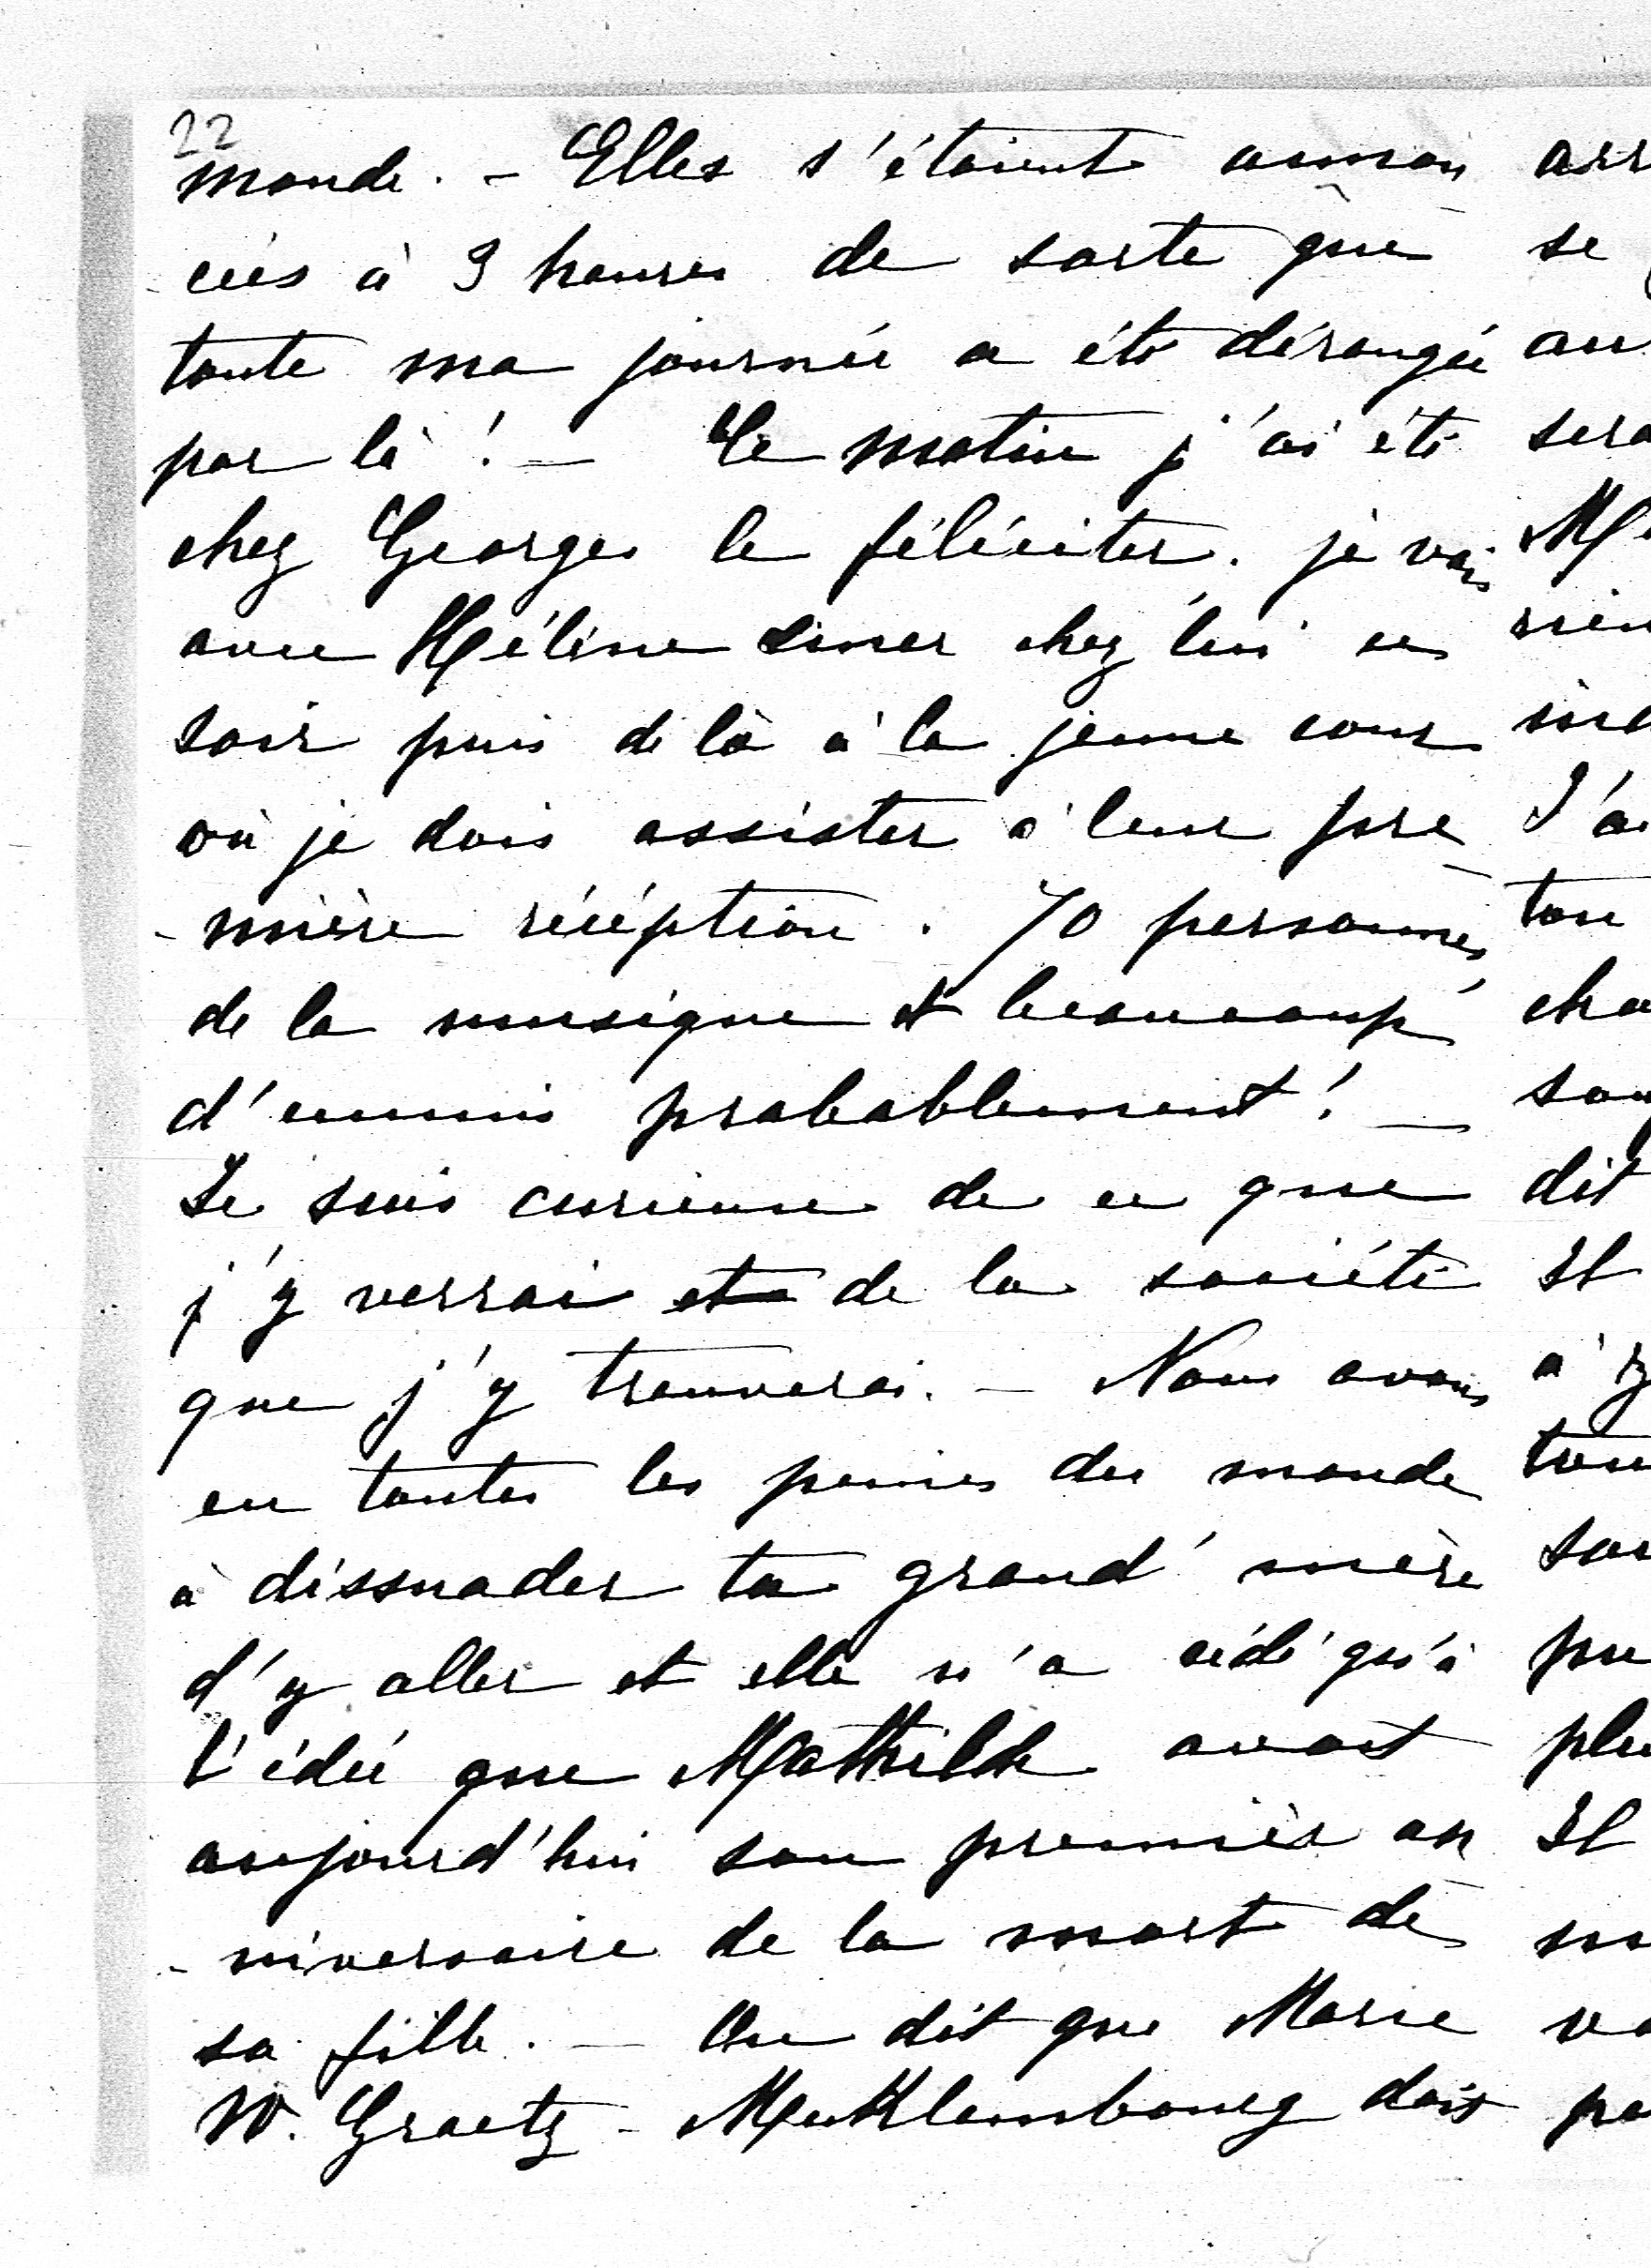 22
monde. - Elles s'étaient annon
cées à 3 heures de sorte que
toute ma journée a été dérangée
par là ! - Ce matin j'ai été
chez Georges le féliciter. je vais
avec Hélène diner chez lui ce
soir puis de là à la jeune cour
où je dois assister à leur pre
- mière réception. 70 personnes
de la musique et beaucoup
d'ennuis probablement ! -
Je suis curieuse de ce que
j'y verrai et de la société
que j'y trouverai. - Nous avons
eu toutes les peines du monde
à dissuader ta grand' mère
d'y aller et elle n'a cédé qu'à
l'idée que Mathilde avait
aujourd'hui son premièr an
- niversaire de la mort de
sa fille. - On dit que Marie
W. Graetz - Meklembourg doit
arr
se
au
sera
rien
J'ai
ton
cha
dit
Il
plu
Il